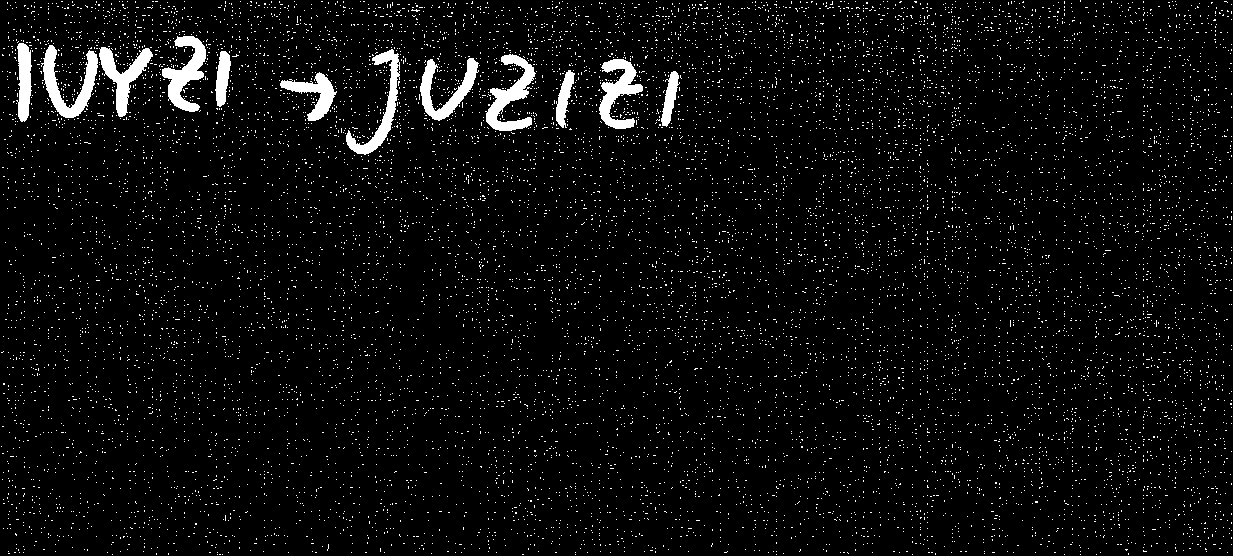 IUYZI → JUZIZI